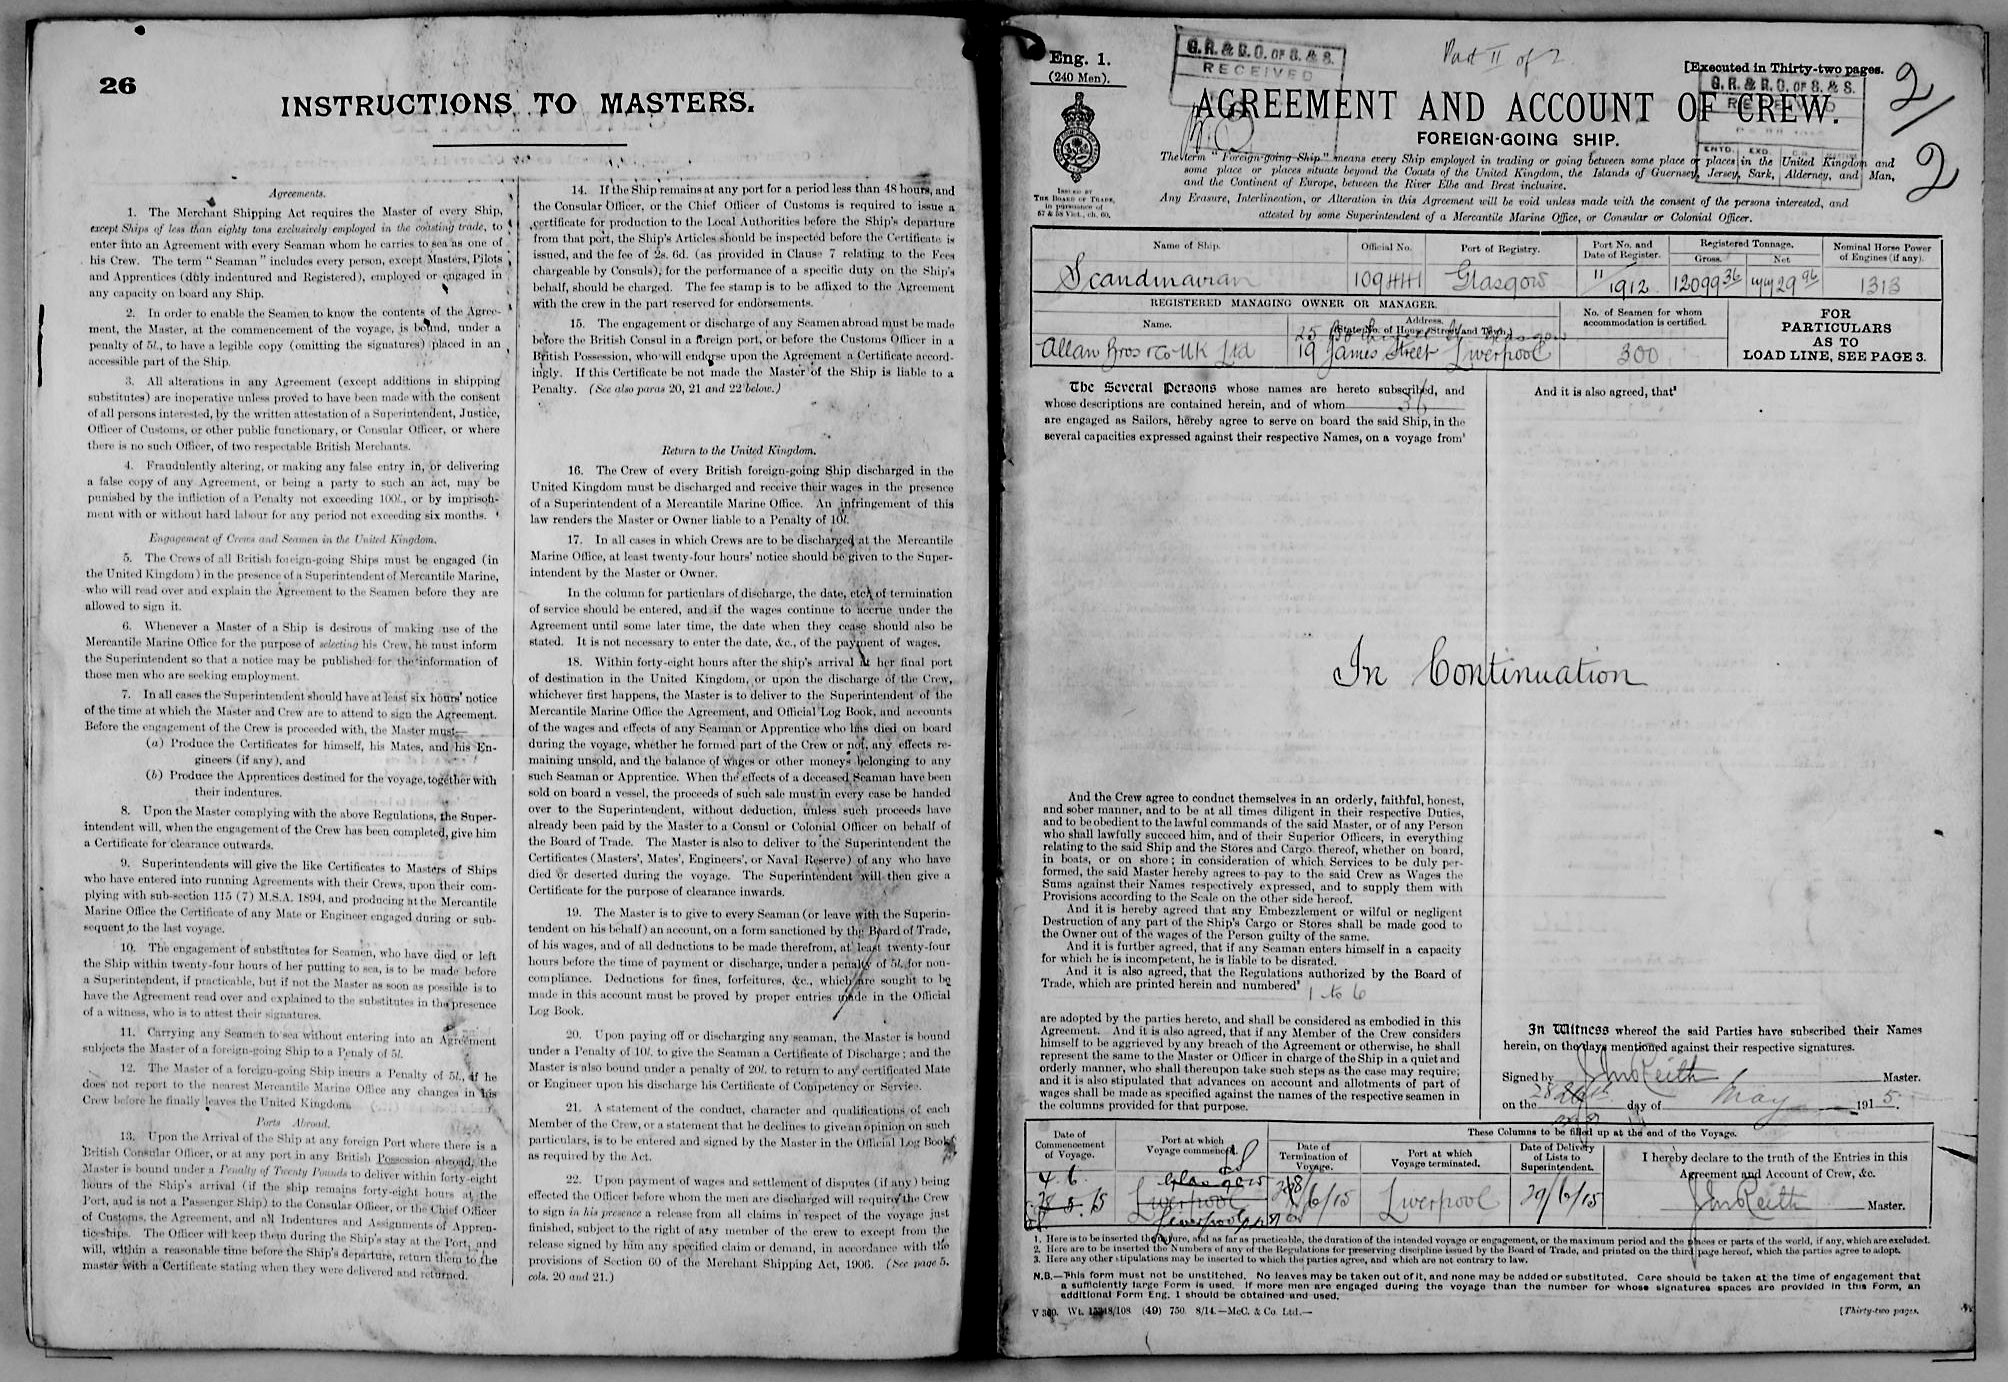 26
INSTRUCTIONS TO MASTERS.
Agreements.
1. The Merchant Shipping Act requires the Master of every Ship,
except Ships of less than eighty tons exclusively employed in the coasting trade, to
enter into an Agreement with every Seaman whom he carries to sea as one of
his Crew. The term "Seaman" includes every person, except Masters, Pilots
and Apprentices (duly indentured and Registered), employed or engaged in
any capacity on board any Ship.
2. In order to enable the Seamen to know the contents of the Agree-
ment, the Master, at the commencement of the voyage, is bound, under a
penalty of 5l., to have a legible copy (omitting the signatures) placed in an
accessible part of the Ship.
3. All alterations in any Agreement (except additions in shipping
substitutes) are inoperative unless proved to have been made with the consent
of all persons interested, by the written attestation of a Superintendent, Justice,
Officer of Customs, or other public functionary, or Consular Officer, or where
there is no such Officer, of two respectable British Merchants.
4. Fraudulently altering, or making any false entry in, or delivering
a false copy of any Agreement, or being a party to such an act, may be
punished by the infliction of a Penalty not exceeding 100l., or by imprison-
ment with or without hard labour for any period not exceeding six months.
Engagement of Crews and Seamen in the United Kingdom.
5. The Crews of all British foreign-going Ships must be engaged (in
the United Kingdom) in the presence of a Superintendent of Mercantile Marine,
who will read over and explain the Agreement to the Seamen before they are
allowed to sign it.
6. Whenever a Master of a Ship is desirous of making use of the
Mercantile Marine Office for the purpose of selecting his Crew, he must inform
the Superintendent so that a notice may be published for the information of
those men who are seeking employment.
7. In all cases the Superintendent should have at least six hours' notice
of the time at which the Master and Crew are to attend to sign the Agreement.
Before the engagement of the Crew is proceeded with, the Master must—
(a) Produce the Certificates for himself, his Mates, and his En-
gineers (if any), and
(b) Produce the Apprentices destined for the voyage, together with
their indentures.
8. Upon the Master complying with the above Regulations, the Super-
intendent will, when the engagement of the Crew has been completed, give him
a Certificate for clearance outwards.
9. Superintendents will give the like Certificates to Masters of Ships
who have entered into running Agreements with their Crews, upon their com-
plying with sub-section 115 (7) M.S.A. 1894, and producing at the Mercantile
Marine Office the Certificate of any Mate or Engineer engaged during or sub-
sequent to the last voyage.
10. The engagement of substitutes for Seamen, who have died or left
the Ship within twenty-four hours of her putting to sea, is to be made before
a Superintendent, if practicable, but if not the Master as soon as possible is to
have the Agreement read over and explained to the substitutes in the presence
of a witness, who is to attest their signatures.
11. Carrying any Seamen to sea without entering into an Agreement
subjects the Master of a foreign-going Ship to a Penaly of 5l.
12. The Master of a foreign-going Ship incurs a Penalty of 5l., if he
does not report to the nearest Mercantile Marine Office any changes in his
Crew before he finally leaves the United Kingdom.
Ports Abroad.
13. Upon the Arrival of the Ship at any foreign Port where there is a
British Consular Officer, or at any port in any British Possession abroad, the
Master is bound under a Penalty of Twenty Pounds to deliver within forty-eight
hours of the Ship's arrival (if the ship remains forty-eight hours at the
Port, and is not a Passenger Ship) to the Consular Officer, or the Chief Officer
of Customs, the Agreement, and all Indentures and Assignments of Appren-
ticeships. The Officer will keep them during the Ship's stay at the Port, and
will, within a reasonable time before the Ship's departure, return them to the
master with a Certificate stating when they were delivered and returned.
14. If the Ship remains at any port for a period less than 48 hours, and
the Consular Officer, or the Chief Officer of Customs is required to issue a
certificate for production to the Local Authorities before the Ship's departure
from that port, the Ship's Articles should be inspected before the Certificate is
issued, and the fee of 2s. 6d. (as provided in Clause 7 relating to the Fees
chargeable by Consuls), for the performance of a specific duty on the Ship's
behalf, should be charged. The fee stamp is to be affixed to the Agreement
with the crew in the part reserved for endorsements.
15. The engagement or discharge of any Seamen abroad must be made
before the British Consul in a foreign port, or before the Customs Officer in a
British Possession, who will endorse upon the Agreement a Certificate accord-
ingly. If this Certificate be not made the Master of the Ship is liable to a
Penalty. (See also paras 20, 21 and 22 below.)
Return to the United Kingdom.
16. The Crew of every British foreign-going Ship discharged in the
United Kingdom must be discharged and receive their wages in the presence
of a Superintendent of a Mercantile Marine Office. An infringement of this
law renders the Master or Owner liable to a Penalty of 10l.
17. In all cases in which Crews are to be discharged at the Mercantile
Marine Office, at least twenty-four hours' notice should be given to the Super-
intendent by the Master or Owner.
In the column for particulars of discharge, the date, etc., of termination
of service should be entered, and if the wages continue to accrue under the
Agreement until some later time, the date when they cease should also be
stated. It is not necessary to enter the date, &c., of the payment of wages.
18. Within forty-eight hours after the ship's arrival at her final port
of destination in the United Kingdom, or upon the discharge of the Crew,
whichever first happens, the Master is to deliver to the Superintendent of the
Mercantile Marine Office the Agreement, and Official Log Book, and accounts
of the wages and effects of any Seaman or Apprentice who has died on board
during the voyage, whether he formed part of the Crew or not, any effects re-
maining unsold, and the balance of wages or other moneys belonging to any
such Seaman or Apprentice. When the effects of a deceased Seaman have been
sold on board a vessel, the proceeds of such sale must in every case be handed
over to the Superintendent, without deduction, unless such proceeds have
already been paid by the Master to a Consul or Colonial Officer on behalf of
the Board of Trade. The Master is also to deliver to the Superintendent the
Certificates (Masters', Mates', Engineers', or Naval Reserve) of any who have
died or deserted during the voyage. The Superintendent will then give a
Certificate for the purpose of clearance inwards.
19. The Master is to give to every Seaman (or leave with the Superin-
tendent on his behalf) an account, on a form sanctioned by the Board of Trade,
of his wages, and of all deductions to be made therefrom, at least twenty-four
hours before the time of payment or discharge, under a penalty of 5l. for non-
compliance. Deductions for fines, forfeitures, &c., which are sought to be
made in this account must be proved by proper entries made in the Official
Log Book.
20. Upon paying off or discharging any seaman, the Master is bound
under a Penalty of 10l. to give the Seaman a Certificate of Discharge; and the
Master is also bound under a penalty of 20l. to return to any certificated Mate
or Engineer upon his discharge his Certificate of Competency or Service.
21. A statement of the conduct, character and qualifications of each
Member of the Crew, or a statement that he declines to give an opinion on such
particulars, is to be entered and signed by the Master in the Official Log Book
as required by the Act.
22. Upon payment of wages and settlement of disputes (if any) being
effected the Officer before whom the men are discharged will require the Crew
to sign in his presence a release from all claims in respect of the voyage just
finished, subject to the right of any member of the crew to except from the
release signed by him any specified claim or demand, in accordance with the
provisions of Section 60 of the Merchant Shipping Act, 1906. (See page 5,
cols. 20 and 21.)
Eng. 1.
(240 Men).
G.R. & R.O. OF S. & S.
RECEIVED
Part II of 2
[Executed in Thirty-two pages.
G.R. & R.O. OF S. & S.
RECEIVED
ENTD. EXD.
2/2
ISSUED BY
THE BOARD OF TRADE,
in pursuance of
57 & 58 Vict., ch. 60.
AGREEMENT AND ACCOUNT OF CREW.
FOREIGN-GOING SHIP.
The term "Foreign-going Ship" means every Ship employed in trading or going between some place or places in the United Kingdom and
some place or places situate beyond the Coasts of the United Kingdom, the Islands of Guernsey, Jersey, Sark, Alderney, and Man,
and the Continent of Europe, between the River Elbe and Brest inclusive.
Any Erasure, Interlineation, or Alteration in this Agreement will be void unless made with the consent of the persons interested, and
attested by some Superintendent of a Mercantile Marine Office, or Consular or Colonial Officer.
Name of Ship. Official No. Port of Registry. Port No. and Date of Register. Registered Tonnage. Gross. Net Nominal Horse Power of Engines (if any).
Scandinavian 109441 Glasgow 11/1912 12099 36 7729 96 1313
REGISTERED MANAGING OWNER OR MANAGER.
Name. Address. (State No. of House, Street and Town.) No. of Seamen for whom accommodation is certified.
25 Bothwell St Glasgow
Allan Bros & Co UK Ltd 19 James Street Liverpool 300
FOR
PARTICULARS
AS TO
LOAD LINE, SEE PAGE 3.
The Several Persons whose names are hereto subscribed, and
whose descriptions are contained herein, and of whom 36
are engaged as Sailors, hereby agree to serve on board the said Ship, in the
several capacities expressed against their respective Names, on a voyage from¹
And it is also agreed, that³
In Continuation
And the Crew agree to conduct themselves in an orderly, faithful, honest,
and sober manner, and to be at all times diligent in their respective Duties,
and to be obedient to the lawful commands of the said Master, or of any Person
who shall lawfully succeed him, and of their Superior Officers, in everything
relating to the said Ship and the Stores and Cargo thereof, whether on board,
in boats, or on shore; in consideration of which Services to be duly per-
formed, the said Master hereby agrees to pay to the said Crew as Wages the
Sums against their Names respectively expressed, and to supply them with
Provisions according to the Scale on the other side hereof.
And it is hereby agreed that any Embezzlement or wilful or negligent
Destruction of any part of the Ship's Cargo or Stores shall be made good to
the Owner out of the wages of the Person guilty of the same.
And it is further agreed, that if any Seaman enters himself in a capacity
for which he is incompetent, he is liable to be disrated.
And it is also agreed, that the Regulations authorized by the Board of
Trade, which are printed herein and numbered²
1 to 6
are adopted by the parties hereto, and shall be considered as embodied in this
Agreement. And it is also agreed, that if any Member of the Crew considers
himself to be aggrieved by any breach of the Agreement or otherwise, he shall
represent the same to the Master or Officer in charge of the Ship in a quiet and
orderly manner, who shall thereupon take such steps as the case may require;
and it is also stipulated that advances on account and allotments of part of
wages shall be made as specified against the names of the respective seamen in
the columns provided for that purpose.
In Witness whereof the said Parties have subscribed their Names
herein, on the days mentioned against their respective signatures.
Signed by Jno Keith Master.
on the 28 day of May 1915.
Date of Commencement of Voyage. Port at which Voyage commenced. These Columns to be filled up at the end of the Voyage.
Date of Termination of Voyage. Port at which Voyage terminated. Date of Delivery of Lists to Superintendent. I hereby declare to the truth of the Entries in this Agreement and Account of Crew, &c.
4.6.15 Glasgow Liverpool 28/6/15 Liverpool 29/6/15 Jno Keith Master.
Liverpool
1. Here is to be inserted the nature, and as far as practicable, the duration of the intended voyage or engagement, or the maximum period and the places or parts of the world, if any, which are excluded.
2. Here are to be inserted the Numbers of any of the Regulations for preserving discipline issued by the Board of Trade, and printed on the third page hereof, which the parties agree to adopt.
3. Here any other stipulations may be inserted to which the parties agree, and which are not contrary to law.
N.B.—This form must not be unstitched. No leaves may be taken out of it, and none may be added or substituted. Care should be taken at the time of engagement that
a sufficiently large Form is used. If more men are engaged during the voyage than the number for whose signatures spaces are provided in this Form, an
additional Form Eng. 1 should be obtained and used.
(49) 750. 8/14.—McC. & Co. Ltd.—
[Thirty-two pages.